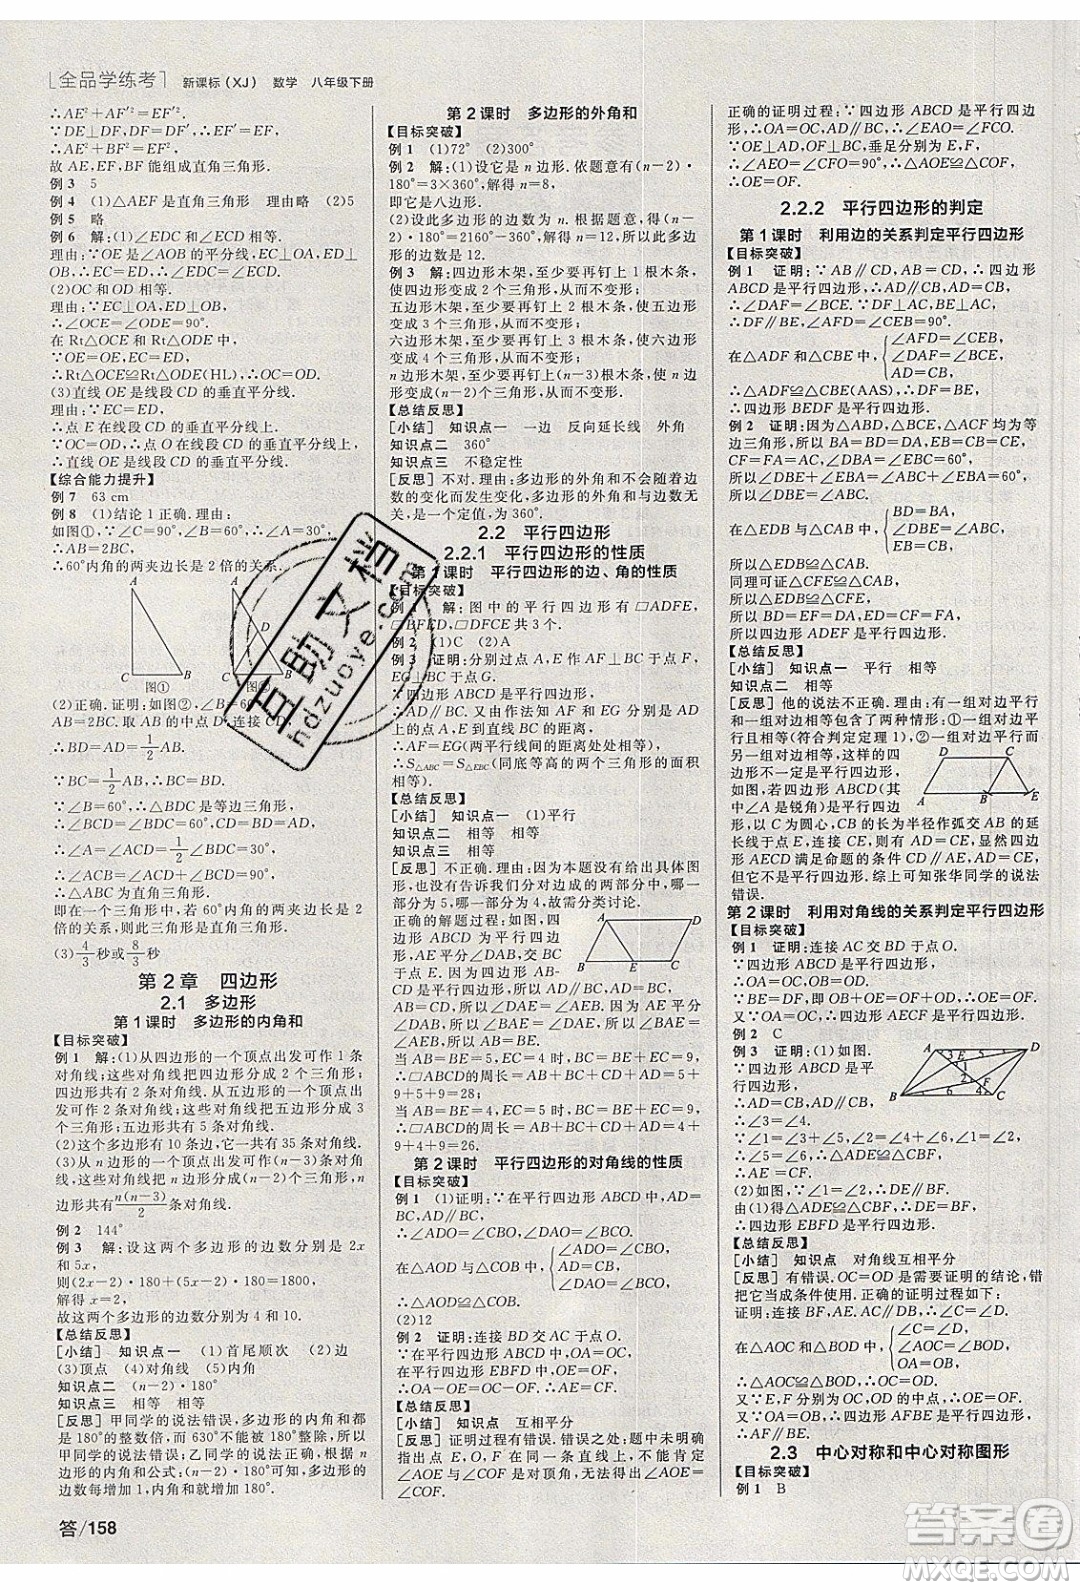 全品学练考 新课标(XJ) 数学 八年级下册
∴AE²+AF′²=EF′².
∵DE⊥DF,DF′=DF,
∴EF′=EF,∴AE²+BF²=EF².
故 AE,EF,BF 能组成直角三角形.
例 3 5
例 4 (1)△AEF 是直角三角形 理由略 (2)5
例 5 略
例 6 解:(1)∠EDC 和∠ECD 相等.
理由:∵OE 是∠AOB 的平分线,EC⊥OA,
ED⊥OB,∴ED=EC,∴∠EDC=∠ECD.
(2)OC 和 OD 相等.
理由:∵EC⊥OA,ED⊥OB,
∴∠OCE=∠ODE=90°.
在 Rt△OCE 和 Rt△ODE 中,
∵OE=OE,EC=ED,
∴Rt△OCE≌Rt△ODE(HL),∴OC=OD.
(3)直线 OE 是线段 CD 的垂直平分线.
理由:∵EC=ED,
∴点 E 在线段 CD 的垂直平分线上.
∵OC=OD,∴点 O 在线段 CD 的垂直平分线上,
∴直线 OE 是线段 CD 的垂直平分线.
【综合能力提升】
例 7 63 cm
例 8 (1)结论 1 正确.理由:
如图①,∵∠C=90°,∠B=60°,∴∠A=30°,
∴AB=2BC.
∴60°内角的两夹边长是 2 倍的关系.
A
C B
图①
(2)正确.证明:如图②,∠B=60°,
AB=2BC.取 AB 的中点 D,连接 CD,
∴BD=AD=1/2AB.
∵BC=1/2AB,∴BC=BD.
∵∠B=60°,∴△BDC 是等边三角形,
∴∠BCD=∠BDC=60°,CD=BD=AD,
∴∠A=∠ACD=1/2∠BDC=30°,
∴∠ACB=90°,
∴△ABC 为直角三角形.
即在一个三角形中,60°内角的两夹边长是 2
倍的关系,则此三角形是直角三角形.
(3)4/3秒或8/3秒
第 2 章 四边形
2.1 多边形
第 1 课时 多边形的内角和
【目标突破】
例 1 解:(1)从四边形的一个顶点出发可作 1 条
对角线;这些对角线把四边形分成 2 个三角形;
四边形共有 2 条对角线.从五边形的一个顶点出
发可作 2 条对角线;这些对角线把五边形分成 3
个三角形;五边形共有 5 条对角线.
(2)这个多边形有 10 条边,它一共有 35 条对角线.
(3)从 n 边形的一个顶点出发可作(n-3)条对角
线;这些对角线把 n 边形分成(n-2)个三角形;n
边形共有n(n-3)/2条对角线.
例 2 144°
例 3 解:设这两个多边形的边数分别是 2x
和 5x,
则(2x-2)·180+(5x-2)·180=1800,
解得 x=2,
故这两个多边形的边数分别为 4 和 10.
【总结反思】
[小结] 知识点一 (1)首尾顺次 (2)边
(3)顶点 (4)对角线 (5)内角
知识点二 (n-2)·180°
知识点三 相等 相等
[反思] 甲同学的说法错误,多边形的内角和都是
180°的整数倍,而 630°不能被 180°整除,所以
甲同学的说法错误;乙同学的说法错误,由多边形
的内角和公式:(n-2)·180°,得每增加一条边,内
角和增加 180°.
答/158
第 2 课时 多边形的外角和
【目标突破】
例 1 (1)72° (2)300°
例 2 解:(1)设它是 n 边形.依题意有(n-2)·
180°=3×360°,解得 n=8,
即它是八边形.
(2)设此多边形的边数为 n.根据题意,得(n-2)·
180°=2160°-360°,解得 n=12.
所以此多边形的边数是 12.
例 3 解:四边形木架,至少要再钉上 1 根木条,
使四边形变成 2 个三角形,从而不变形;
五边形木架,至少要再钉上 2 根木条,使五边形
变成 3 个三角形,从而不变形;
六边形木架,至少要再钉上 3 根木条,使六边形
变成 4 个三角形,从而不变形;
n 边形木架,至少要再钉上(n-3)根木条,使 n 边
形变成(n-2)个三角形,从而不变形.
【总结反思】
[小结] 知识点一 一边 反向延长线 外角
知识点二 360°
知识点三 不稳定性
[反思] 不对.理由:多边形的外角和不随着边
数的变化而发生变化,多边形的外角和无论多少都
是一个定值,为 360°.
2.2 平行四边形
2.2.1 平行四边形的性质
第 1 课时 平行四边形的边、角的性质
【目标突破】
例 1 解:图中的平行四边形有▱ADFE,
▱BFED,▱DFCE 共 3 个.
例 2 (1)C (2)A
例 3 证明:分别过点 A,E 作 AF⊥BC 于点 F,
EG⊥BC 于点 G.
∵四边形 ABCD 是平行四边形,
∴AD∥BC.又由作法知 AF 和 EG 分别是
点 A,E 到直线 BC 的距离,
∴AF=EG(两平行线间的距离处处相等),
∴S△ABC=S△EBC(同底等高的两个三角形面积
相等).
【总结反思】
[小结] 知识点一 (1)平行
知识点二 相等 相等
知识点三 相等
[反思] 不正确.理由:因为本题没有给出具体图
形,也没有告诉我们分成的两部分中,哪一
部分为 5,哪一部分为 4,故需分类讨论.
正确的解题过程:如图,在平行四
边形 ABCD 中,AD∥BC,则∠DAE=∠AEB.
因为 AE 平分∠BAD,
所以∠BAE=∠DAE,所以∠BAE=∠AEB,
所以 AB=BE.
当 AB=BE=5,EC=4 时,BC=BE+EC=9,
∴▱ABCD 的周长=AB+BC+CD+AD=5+9+
5+9=28;
当 AB=BE=4,EC=5 时,BC=BE+EC=9,
∴▱ABCD 的周长=AB+BC+CD+AD=4+
9+4+9=26.
第 2 课时 平行四边形的对角线的性质
【目标突破】
例 1 (1)证明:∵在平行四边形 ABCD 中,AD=
BC,AD∥BC,
∴∠ADO=∠CBO,∠DAO=∠BCO.
在△AOD 和△COB 中,{∠ADO=∠CBO, AD=BC, ∠DAO=∠BCO,
∴△AOD≌△COB.
(2)12
例 2 证明:连接 BD 交 AC 于点 O.
∵在平行四边形 DEBF 中,OE=OF,
在平行四边形 ABCD 中,OA=OC,
∴OA-OE=OC-OF,∴AE=CF.
【总结反思】
[小结] 知识点 互相平分
[反思] 证明过程有错误.错误之处:由题意不能
得出点 E,O,F 一定在同一直线上,所以
∠AOE 与∠COF 不一定是对顶角,故不能判定
∠AOE=∠COF.
正确的证明过程:∵四边形 ABCD 是平行四边
形,∴OA=OC,AD∥BC,∴∠EAO=∠FCO.
∵OE⊥AD,OF⊥BC,垂足分别为 E,F,
∴∠AEO=∠CFO=90°,∴△AOE≌△COF,
∴OE=OF.
2.2.2 平行四边形的判定
第 1 课时 利用边的关系判定平行四边形
【目标突破】
例 1 证明:∵AB∥CD,AB=CD,∴四边形
ABCD 是平行四边形,∴AD∥BC,
∴∠DAF=∠BCE.∵BE⊥AC,
∴DF∥BE,∠AFD=∠CEB=90°.
在△ADF 和△CBE 中,{∠AFD=∠CEB, ∠DAF=∠BCE, AD=CB,
∴△ADF≌△CBE(AAS),∴DF=BE,
∴四边形 BEDF 是平行四边形.
例 2 证明:因为△ABD,△BCE,△ACF 均为等
边三角形,所以 BA=BD=AD,BE=BC=EC,
CF=FA=AC,∠DBA=∠EBC=60°,
所以∠EBD=∠CBA.
在△EDB 与△CAB 中,{BD=BA, ∠DBE=∠ABC, BE=BC,
所以△EDB≌△CAB.
同理可证△CFE≌△CAB,
所以△EDB≌△CFE,
所以 BD=EF,ED=CF,即 AD=EF,ED=FA,
所以四边形 ADEF 是平行四边形.
【总结反思】
[小结] 知识点一 平行 相等
知识点二 相等
[反思] 他的说法不正确.理由:一组对边平行
和一组对边相等包含了两种情形:①一组对边平
行且相等(符合判定定理 1),②一组对边平行
而另一组对边相等,这样的四
边形不一定是平行四边形.例
如,若四边形 ABCD 是平行四边形(其中
∠A 是锐角)是平行四边形,
以 C 为圆心,CB 的长为半径作弧交 AB 的延
长线于点 E,连接 CE,那么 AD=CE,而四边
形 AECD 满足命题的条件 CD∥AE,AD=CE,
但它不是平行四边形.综上可知张华同学的说法
错误.
第 2 课时 利用对角线的关系判定平行四边形
【目标突破】
例 1 证明:连接 AC 交 BD 于点 O.
∵四边形 ABCD 是平行四边形,
∴OA=OC,OB=OD.
∵BE=DF,即 OB+OE=OD+OF,∴OE=OF.
又∵OA=OC,∴四边形 AECF 是平行四边形.
例 2 C
例 3 证明:(1)如图.
∵四边形 ABCD 是平行
四边形,
∴AD=BC,AD∥BC,
∴∠3=∠4.
∵∠1=∠3+∠5,∠2=∠4+∠6,∠1=∠2,
∴∠5=∠6,∴△ADE≌△CBF,
∴AE=CF.
(2)如图.∵∠1=∠2,∴DE∥BF.
由(1)知△ADE≌△CBF,∴DE=BF,
∴四边形 EBFD 是平行四边形.
【总结反思】
[小结] 知识点 对角线互相平分
[反思] 有错误.OC=OD 是需要证明的结论,错
将它当成条件使用.正确的证明过程如下:
证明:连接 BF,AE.∵AC∥BD,∴∠C=∠D.
在△AOC 和△BOD 中,{∠C=∠D, ∠AOC=∠BOD, OA=OB,
∴△AOC≌△BOD,∴OC=OD.
又∵E,F 分别为 OC,OD 的中点,∴OE=OF.
又∵OA=OB,∴四边形 AFBE 是平行四边形,
∴AF∥BE.
2.3 中心对称和中心对称图形
【目标突破】
例 1 B